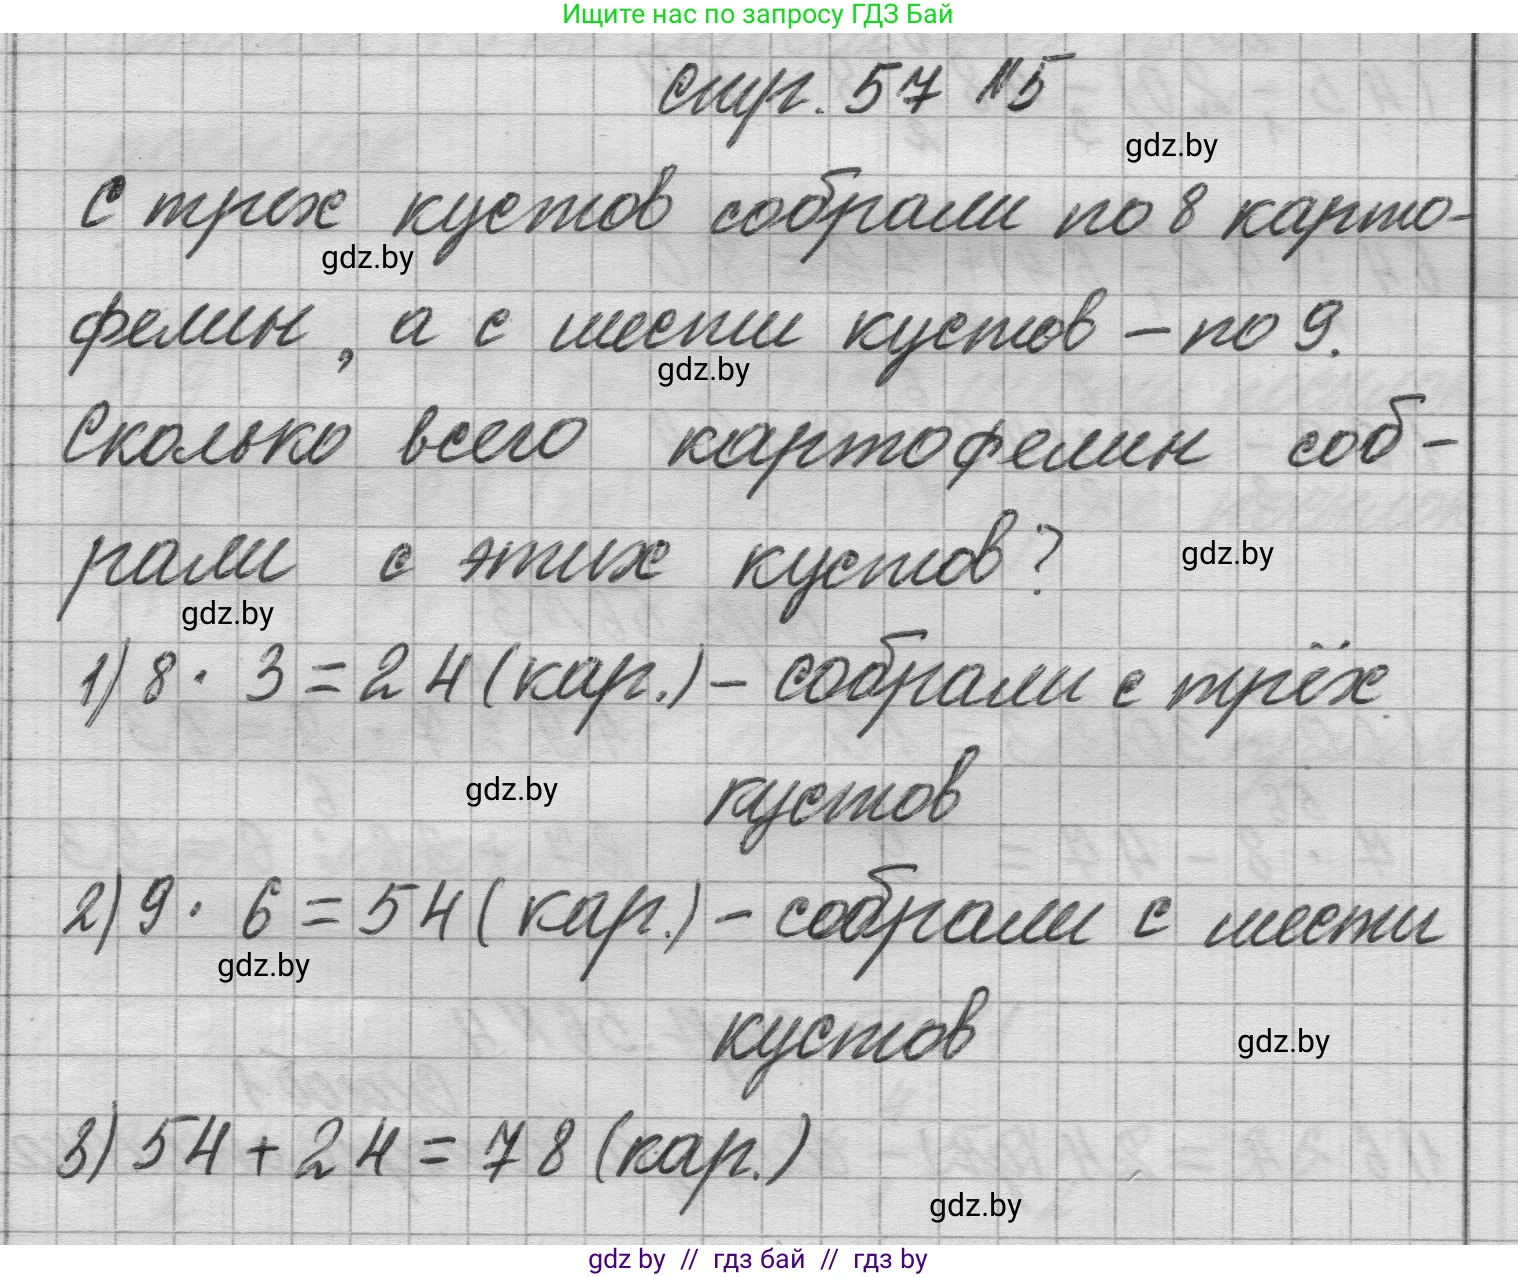 Ищите нас по запросу ГДЗ Бай
стр. 57 №5
gdz.by
С трех кустов собрали по 8 карто-
gdz.by
фелин, а с шести кустов – по 9.
gdz.by
Сколько всего картофелин соб-
рали с этих кустов?
gdz.by
gdz.by
1) 8 · 3 = 24 (кар.) – собрали с трёх
gdz.by
кустов
2) 9 · 6 = 54 (кар.) – собрали с шести
gdz.by
кустов
gdz.by
3) 54 + 24 = 78 (кар.)
gdz.by
gdz by // гдз бай // гдз by